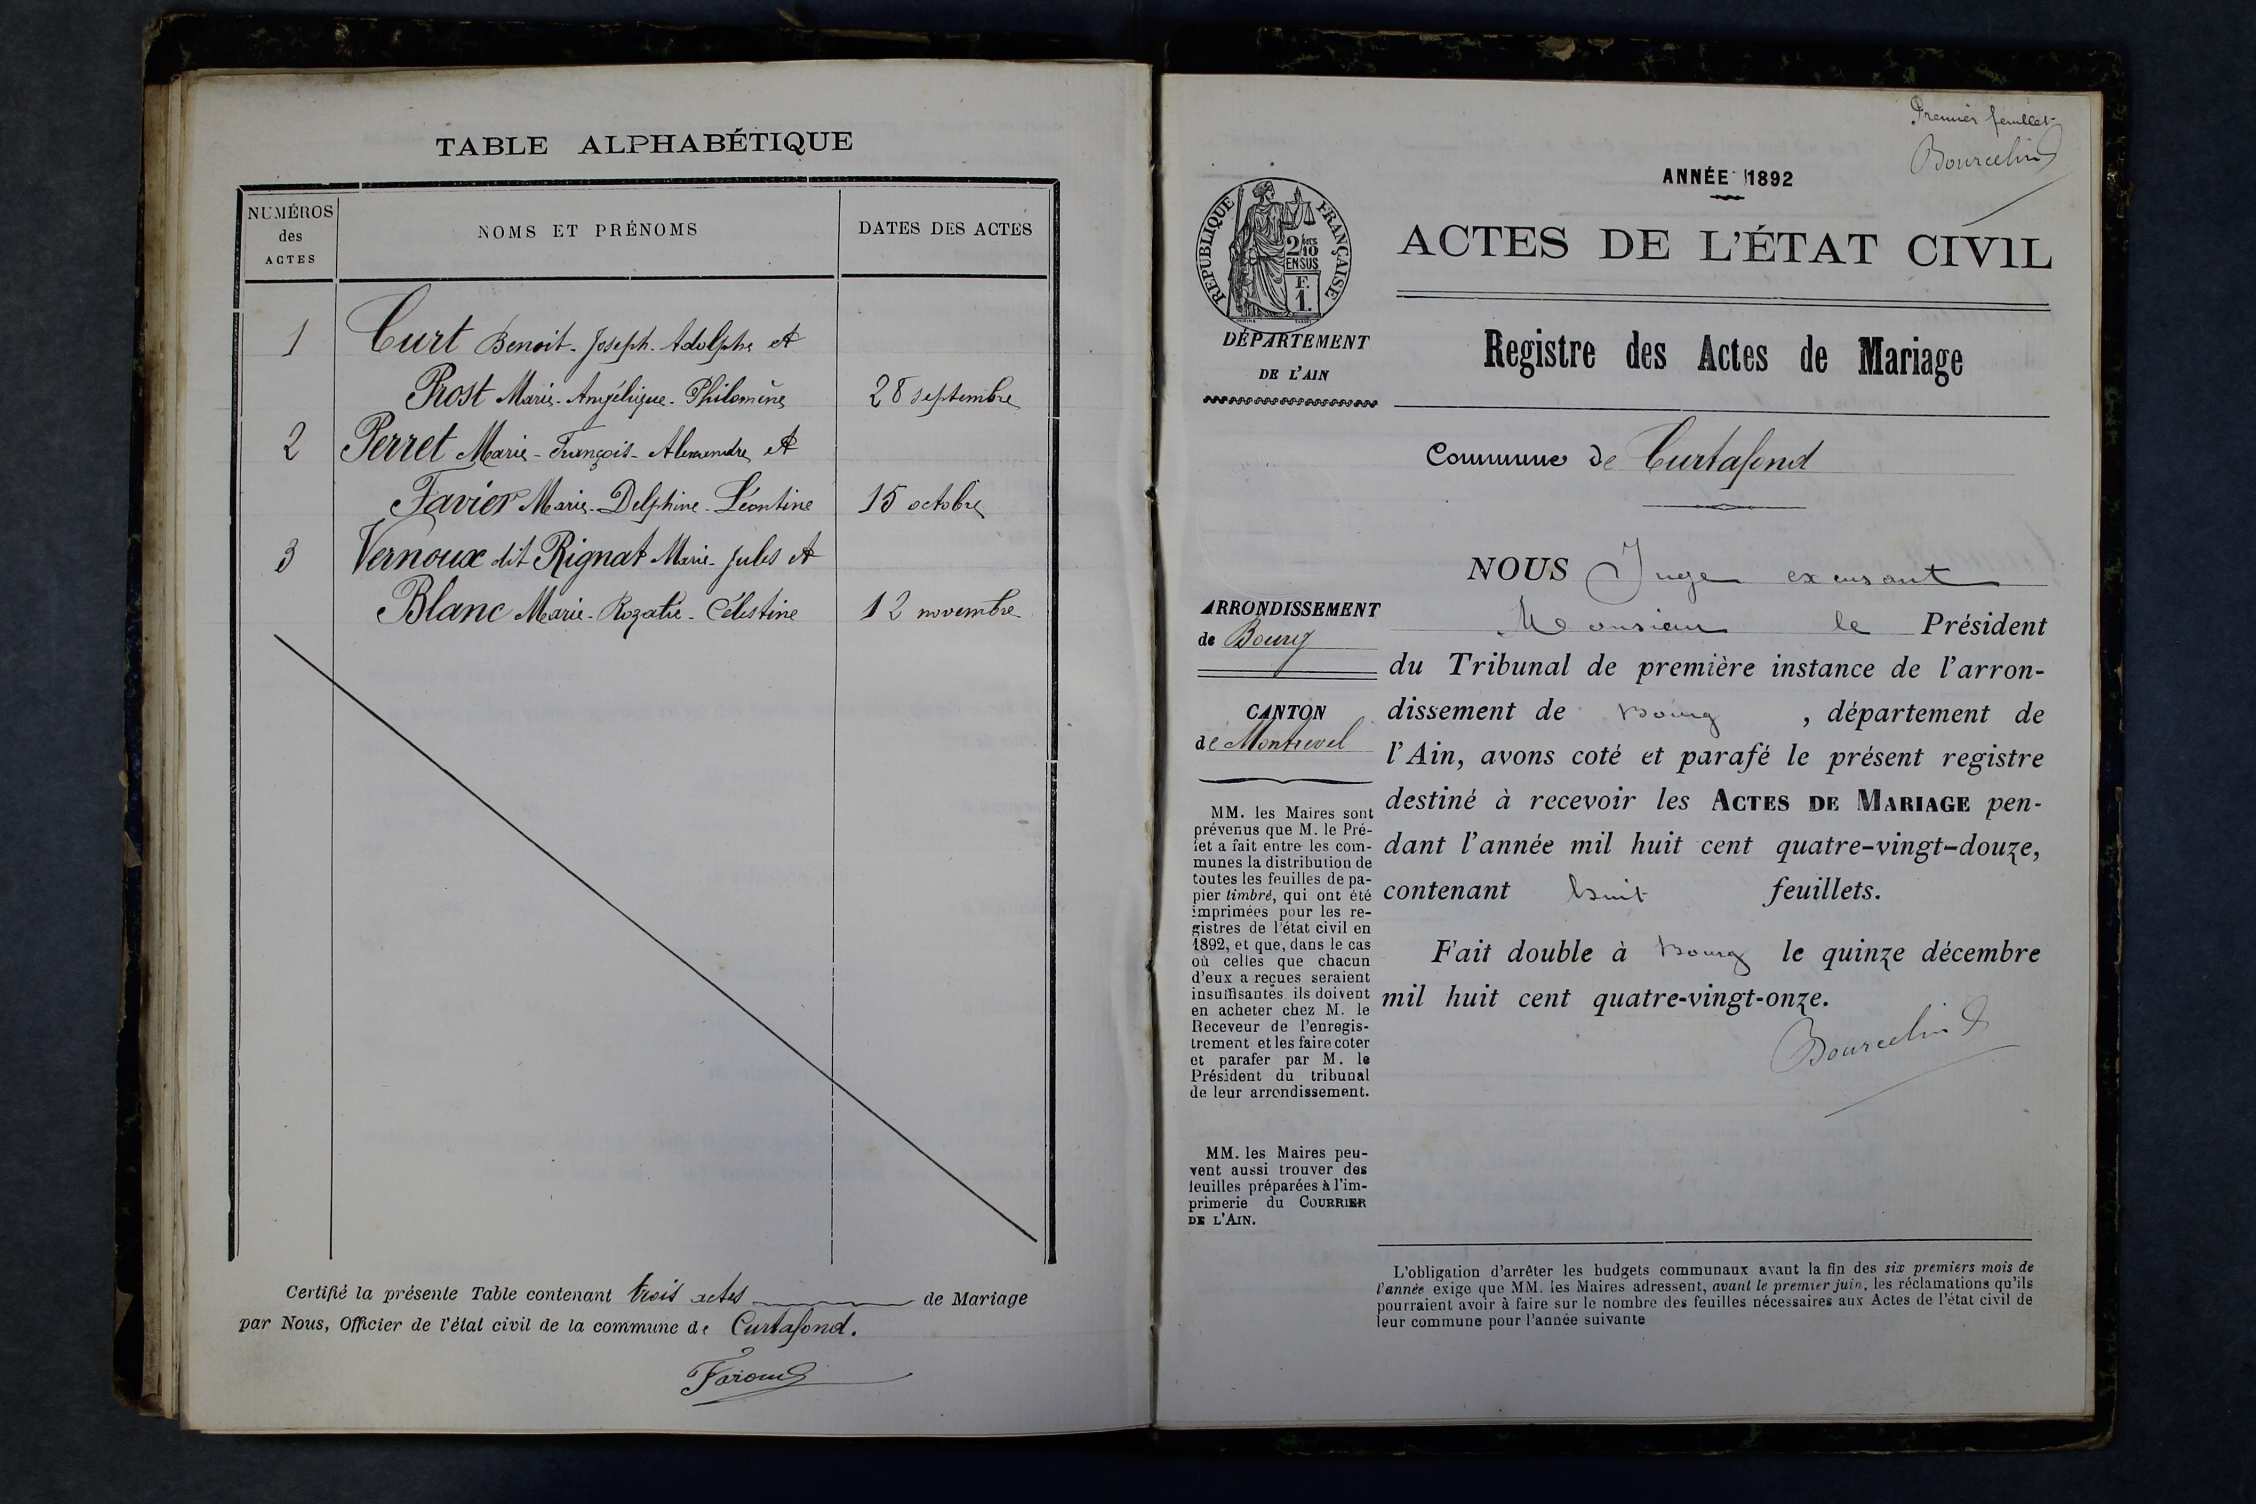 TABLE ALPHABÉTIQUE
NUMÉROS
des
ACTES
NOMS ET PRÉNOMS
DATES DES ACTES
1 Curt Benoit-Joseph-Adolphe et
Prost Marie-Angélique-Philomène 28 septembre
2 Perret Marie-François-Alexandre et
Favier Marie-Delphine-Léontine 15 octobre
3 Vernoux dit Rignat Marie-Jules et
Blanc Marie-Rozalie-Célestine 12 novembre
Certifié la présente Table contenant trois actes de Mariage
par Nous, Officier de l'état civil de la commune de Curtafond.
Premier feuillet
Bourcelin
ANNÉE 1892
RÉPUBLIQUE FRANÇAISE
2/10
EN SUS
F.
1.
ACTES DE L'ÉTAT CIVIL
DÉPARTEMENT
DE L'AIN
Registre des Actes de Mariage
Commune de Curtafond
ARRONDISSEMENT
de Bourg
CANTON
de Montrevel
MM. les Maires sont
prévenus que M. le Pré-
fet a fait entre les com-
munes la distribution de
toutes les feuilles de pa-
pier timbré, qui ont été
imprimées pour les re-
gistres de l'état civil en
1892, et que, dans le cas
où celles que chacun
d'eux a reçues seraient
insuffisantes ils doivent
en acheter chez M. le
Receveur de l'enregis-
trement et les faire coter
et parafer par M. le
Président du tribunal
de leur arrondissement.
MM. les Maires peu-
vent aussi trouver des
feuilles préparées à l'im-
primerie du COURRIER
DE L'AIN.
NOUS Juge excusant
Monsieur le Président
du Tribunal de première instance de l'arron-
dissement de Bourg, département de
l'Ain, avons coté et parafé le présent registre
destiné à recevoir les ACTES DE MARIAGE pen-
dant l'année mil huit cent quatre-vingt-douze,
contenant huit feuillets.
Fait double à Bourg le quinze décembre
mil huit cent quatre-vingt-onze.
Bourcelin
L'obligation d'arrêter les budgets communaux avant la fin des six premiers mois de
l'année exige que MM. les Maires adressent, avant le premier juin, les réclamations qu'ils
pourraient avoir à faire sur le nombre des feuilles nécessaires aux Actes de l'état civil de
leur commune pour l'année suivante